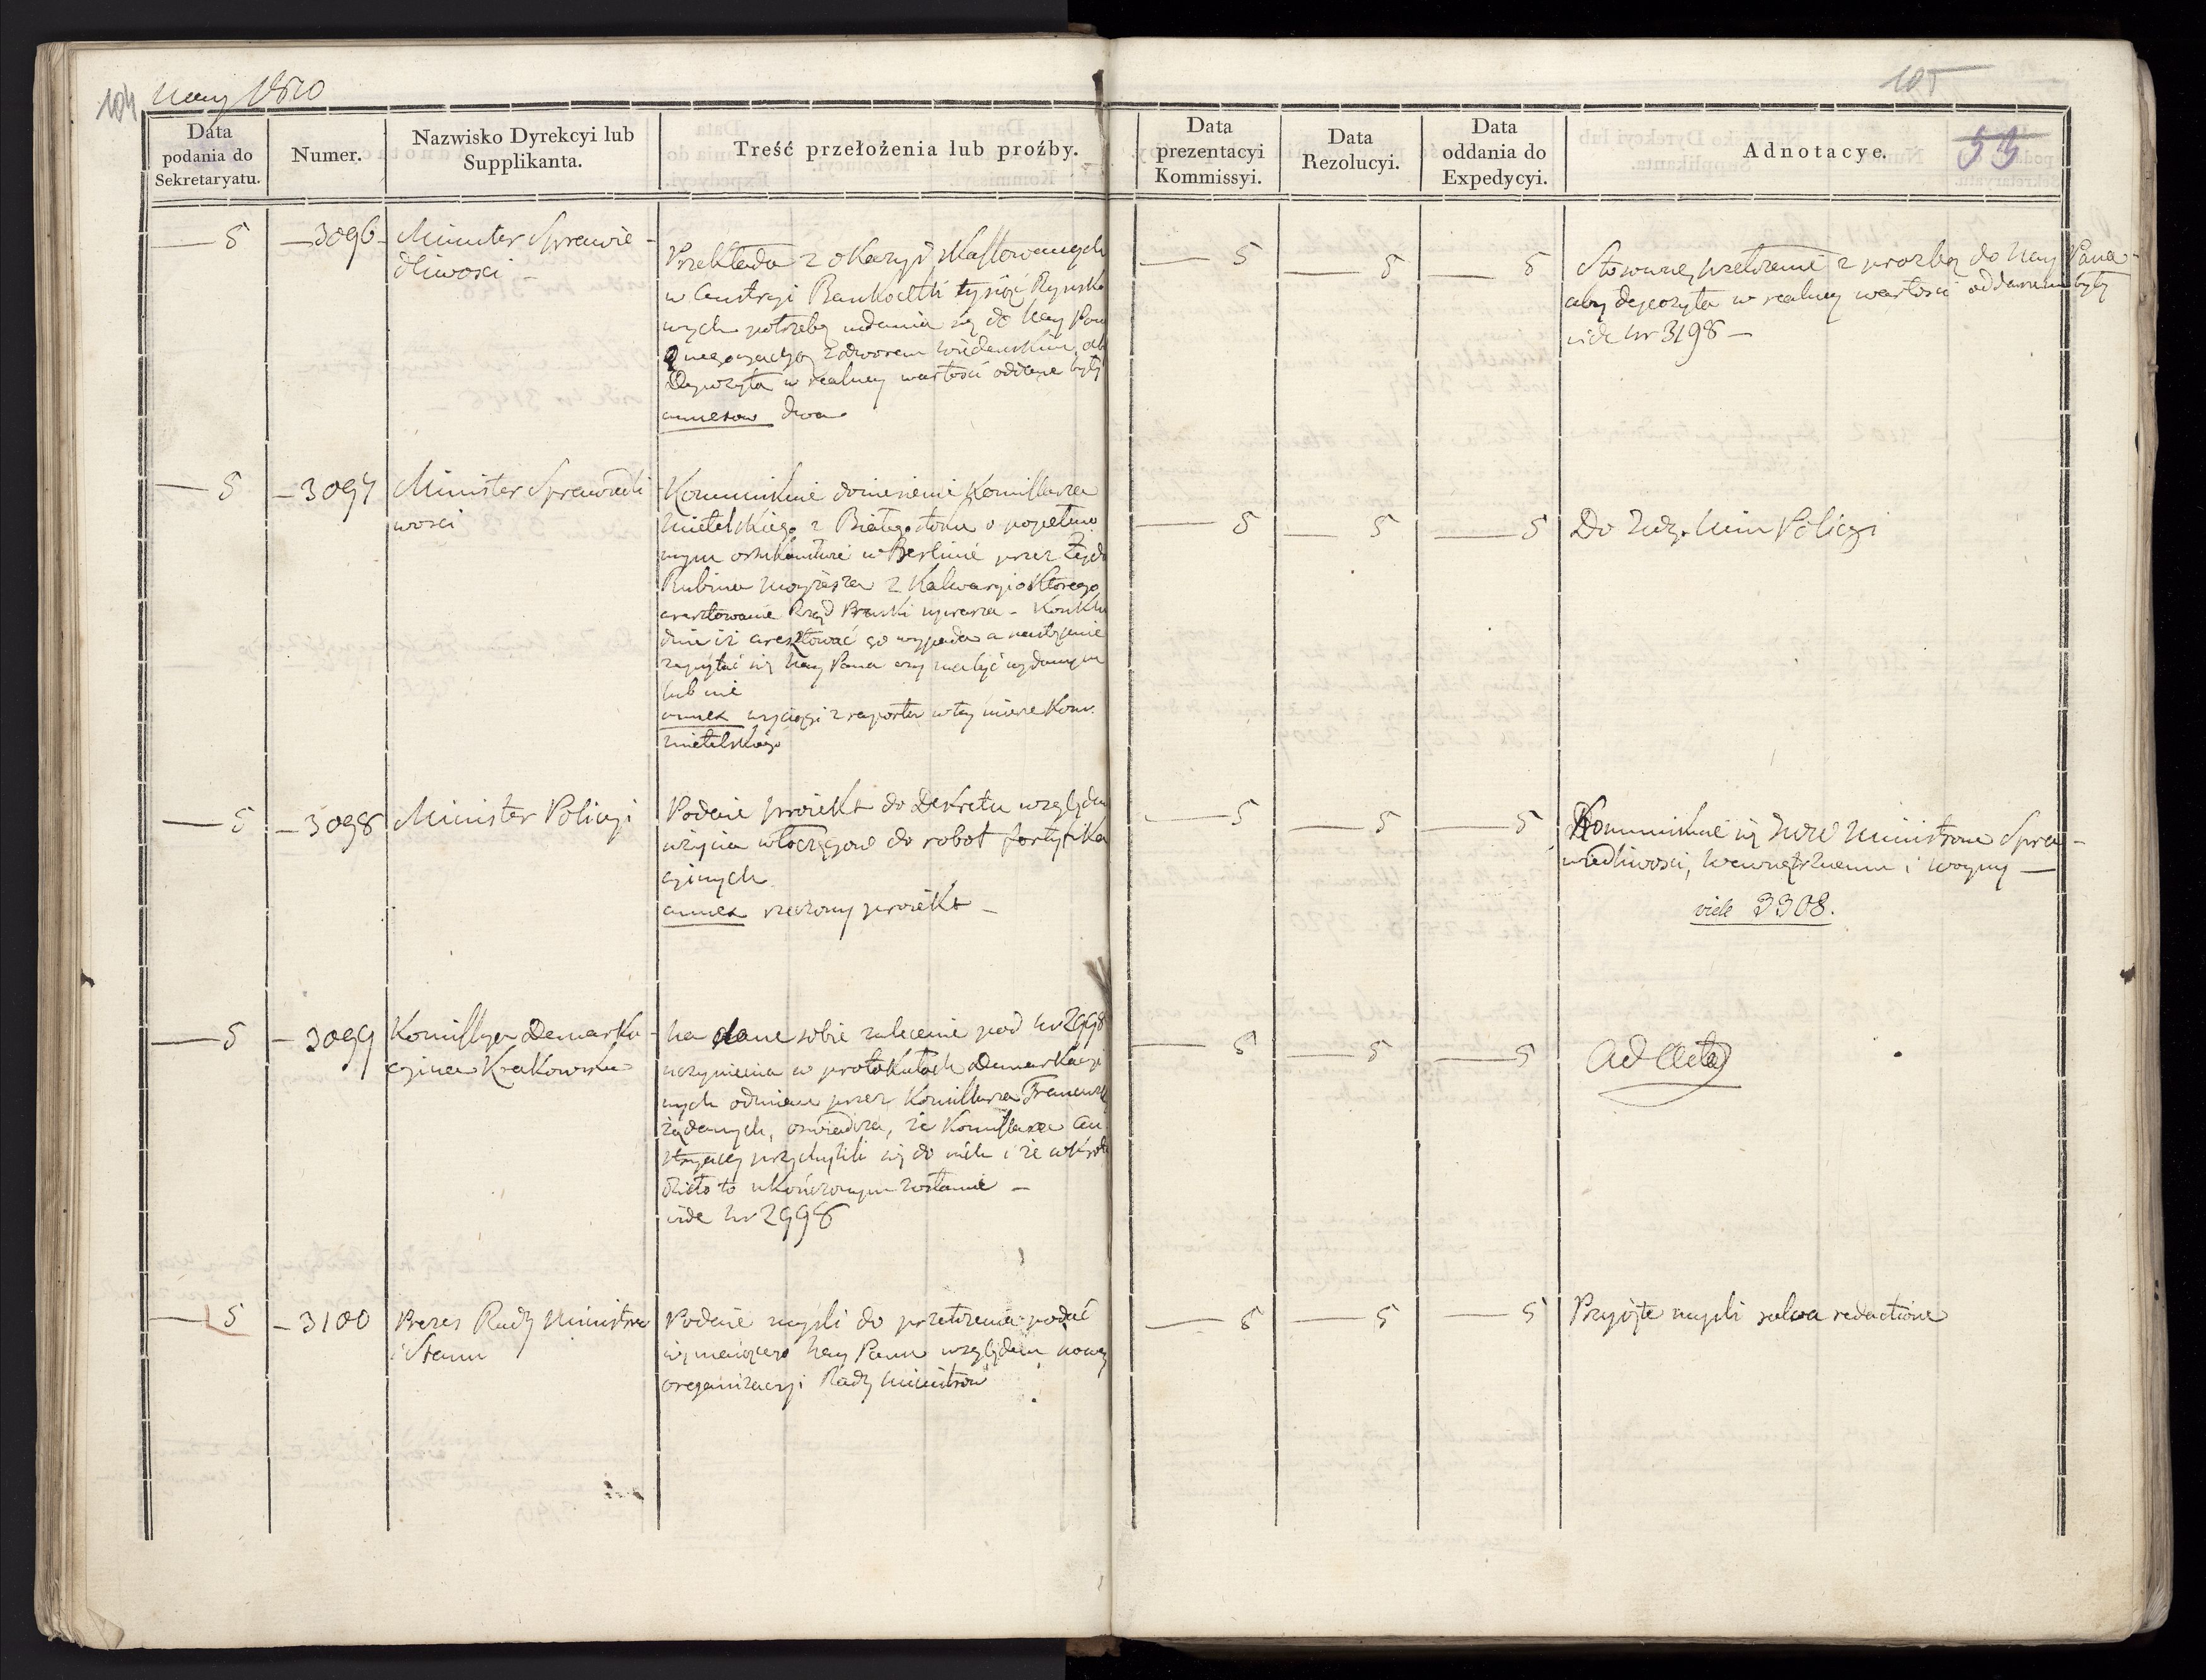 104 May 1810
105
53
Data
podania do
Sekretaryatu.
Numer.
Nazwisko Dyrekcyi lub
Supplikanta.
Treść przełożenia lub proźby.
Data
prezentacyi
Kommissyi.
Data
Rezolucyi.
Data
oddania do
Expedycyi.
Adnotacye.
— 5
— 3096
Minister Sprawie-
dliwosci —
Przekłada z okazyi
w Austryi tysiąc Rynsko
wych potrzebę udania się do Nay Pana
o negocyacyą z dworem Wiedeńskim ab
Depozyta w realney wartości oddane były
annexow dwa
— 5
— 5
— 5
Stosowne przełożenie z prozbą do Nay Pana
aby depozyta w realney wartości oddawane były
vide Nr 3198 —
— 5
— 3097
Minister Sprawiedli
wosci
Kommunikuie doniesienie Kommissarza
z Białegostoku o popełnio
nym w Berlinie przez
Rubina z Kalwaryi o którego
aresztowanie Rząd Pruski uprasza — Konklu
duie iż aresztować go wypada a następnie
zapytać się Nay Pana czy ma być wydanym
lub nie
annex wyciągi z raportu w tey mierze Kom.
— 5
— 5
— 5
Do Min Policyi
— 5
— 3098
Minister Policyi
Podaie proiekt do Dekretu względem
użycia włoczęgow do robot fortyfika
cyinych
annex rzeczony proiekt —
— 5
— 5
— 5
Kommunikuie się Ministrom Spra-
wiedliwosci, Wewnętrznemu i Woyny —
vide 3308.
— 5
— 3099
Komissya Demarka-
cyina Krakowska
Na dane sobie zalecenie pod Nr 2998
uczynienia w protokułach Demarkacyi
nych odmian przez Komissarza Francuzk
żądanych, oświadcza, że Komissarze Au
stryaccy przychylili się do nich i że wkrotce
dzieło to ukończonym zostanie —
vide Nr 2998
— 5
— 5
— 5
Ad Acta
— 5
— 3100
Prezes Rady Ministrow
i Stanu
Podaie mysli do przełożenia podać
się maiącego Nay Panu względem nowey
organizacyi Rady Ministrow
— 5
— 5
— 5
Przyięte mysli salva redactione